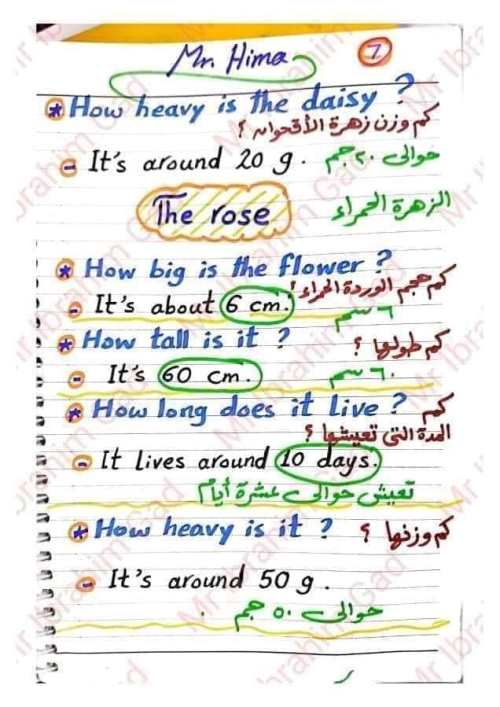 Mr. Hima 7
* How heavy is the daisy ?
كم وزن زهرة الأقحوان ؟
- It's around 20 g . حوالى ٢٠ جم
The rose الزهرة الحمراء
* How big is the flower ?
كم حجم الوردة الحمراء ؟
- It's about 6 cm. ٦ سم
* How tall is it ? كم طولها ؟
- It's 60 cm. ٦٠ سم
* How long does it live ? كم
المدة التى تعيشها ؟
- It lives around 10 days.
تعيش حوالى عشرة أيام
* How heavy is it ? كم وزنها ؟
- It's around 50 g .
حوالى ٥٠ جم .
Mr Ibrahim Gad